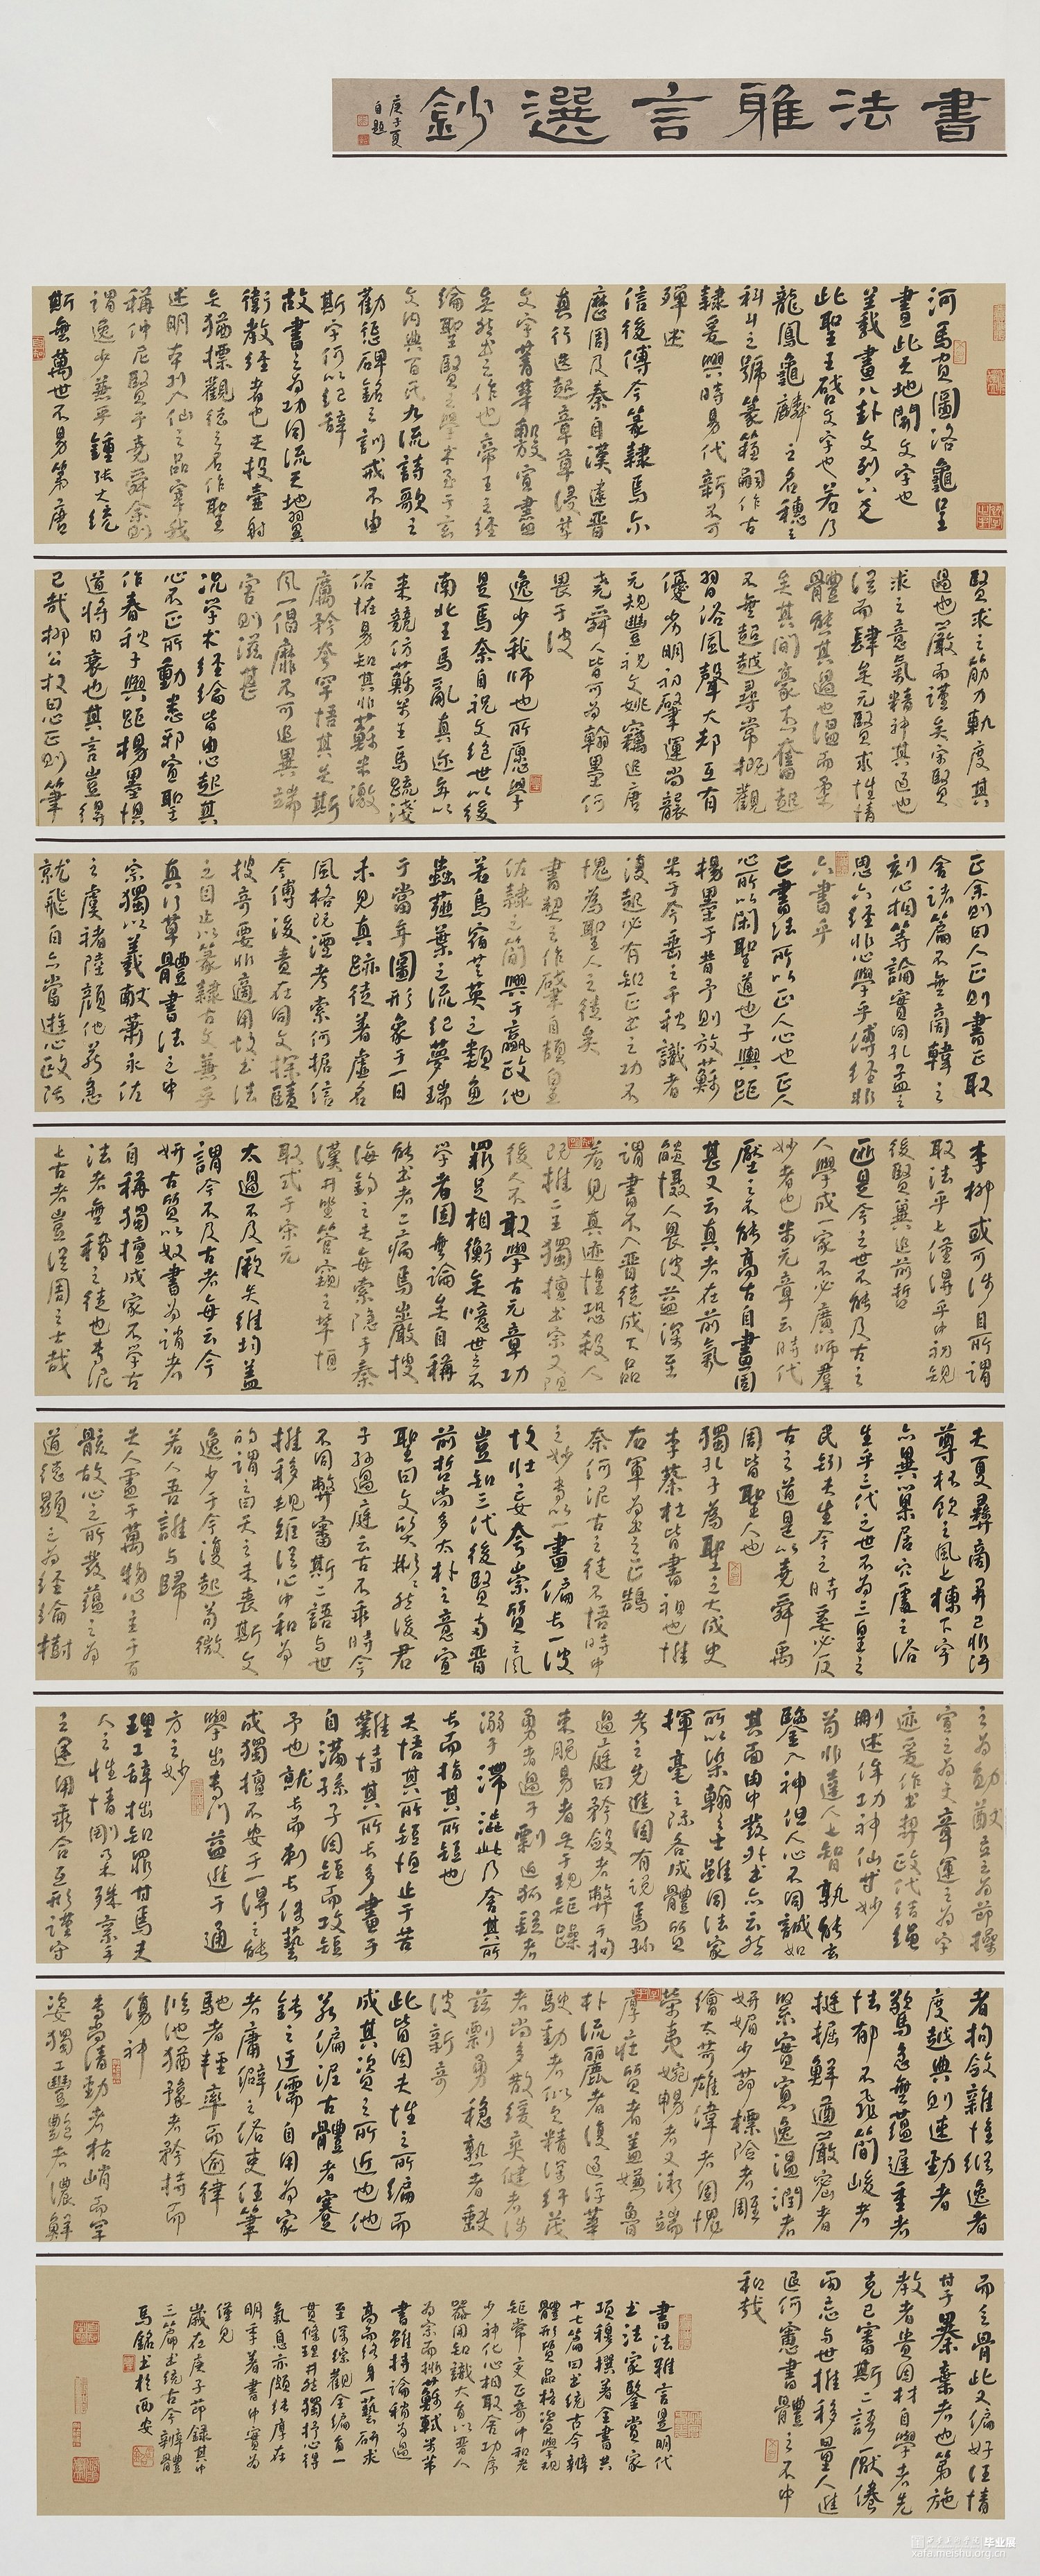 書法雅言選鈔
庚子夏
自題
河馬負圖洛龜呈
書此天地開文字也
羲畫八卦文列六爻
此聖王啟文字也若乃
龍鳳龜麟之名穗雲
科斗之號篆籀嗣作古
隸爰興時易代新不可
殫述
信後傳今篆隸焉爾
歷周及秦自漢逮晉
真行迭起章草浸孳
文字菁華敷宣盡
矣然書之作也帝王之經
綸聖賢之學術至于玄
文內典百氏九流詩歌之
勸懲碑銘之訓戒不由
斯字何以紀辭
故書之為功同流天地翼
衛教經者也夫投壺射
矢猶標觀德之名作聖
述明本列入仙之品寧我
稱仲尼賢于堯舜余則
謂逸少兼乎鍾張大統
斯垂萬世不易第唐
賢求之筋力軌度其
過也嚴而謹矣宋賢
求之意氣精神其過也
縱而肆矣元賢求性情
體態其過也溫而柔
矣其間豪杰奮起
不無超越尋常概觀
習俗風聲大都互有
優劣明初肇運尚襲
元規豐祝文姚竊追唐
堯舜人皆可為翰墨何
畏于彼
逸少我師也所願學
是焉奈自祝文絕世以後
南北王馬亂真邇年以
來競仿蘇米王馬疏淺
俗怪易知其非蘇米激
厲矜夸罕悟其失斯
風一倡靡不可追異端
害則滋甚
況學术經綸皆由心起其
心不正所動悉邪宣聖
作春秋子輿距楊墨懼
道將日衰也其言豈得
已哉柳公权曰心正則筆
正余則曰人正則書正取
舍諸篇不無商韓之
刻心相等論實同孔孟之
思六經非心學乎傳經非
六書乎
正書法所以正人心也正人
心所以閑聖道也子輿距
楊墨于昔予則放蘇
米于今垂之千秋識者
復起必有知正書之功不
愧為聖人之徒矣
書契之作肇自頡皇
佐隸之簡興于嬴政他
若鳥宿芝英之類魚
蟲薤葉之流紀夢瑞
于當年圖形象于一日
未見真跡徒著虛名
風格既湮考索何據信
今傳後責在同文探賾
搜奇要非適用故書法
之目止以篆隸古文兼乎
真行草體書法之中
宗獨以羲獻蕭永佐
之虞褚陸顏他若急
就飛白亦當遊心歐張
李柳或可涉目所謂
取法乎上僅得乎中初規
後賢冀追前哲
匪是今之世不能及古之
人學成一家不必廣師羣
妙者也米元章云時代
壓之不能高古自畫固
甚又云真者在前氣
燄懾人畏彼益深至
謂書不入晉徒成下品
若見真跡惶恐殺人
既推二王獨擅書宗又阻
後人不敢學古元章功
罪足相衡矣噫世之不
學者固無論矣自稱
能書者二病焉巖搜
海釣之夫每索隱于秦
漢井坐管窺之輩恒
取式于宋元
太過不及厥失維均蓋
謂今不及古者每云今
妍古質以奴書為誚者
自稱獨擅成家不學古
法者無稽之徒也專泥
上古者豈從周之士哉
夫夏彝商鼎已非汙
尊抔飲之風上棟下宇
亦異巢居穴處之俗
生乎三代之世不為三皇之
民矧夫生今之時奚必反
古之道是以堯舜禹
周皆聖人也
獨孔子為聖之大成史
李蔡杜皆書祖也惟
右軍為書之正鵠
奈何泥古之徒不悟時中
之妙專以一畫偏長一波
故壯妄夸崇質之風
豈知三代後賢两晉
前哲尚多太朴之意宣
聖曰文質彬彬然後君
子孫過庭云古不乖時今
不同弊審斯二語與世
推移規矩從心中和為
的謂之曰天之未喪斯文
逸少于今復起苟微
若人吾誰與歸
夫人靈于萬物心主于百
骸故心之所發蘊之為
道德顯之為經綸樹
之為勛猷立之為節操
宣之為文章運之為字
跡爰作書契政代結繩
刪述侔功神仙等妙
苟非達人上智孰能玄
鑒入神但人心不同誠如
其面由中發外書亦云然
所以染翰之士雖同法家
揮毫之際各成體質
考之先進固有說焉孫
過庭曰矜斂者弊于拘
束脫易者失于規矩躁
勇者過于剽迫狐疑者
溺于滯澀此乃舍其所
長而指其所短也
夫悟其所短恒止于苦
難恃其所長多畫于
自滿孫子因短而攻短
予也就長而刺長使藝
成獨擅不安于一得之能
學出專門益進于通
方之妙
理工辭拙知罪甘焉夫
人之性情剛柔殊稟手
之運用乖合互形謹守
者拘斂雜懷縱逸者
度越典則速勁者
驚急無蘊遲重者
怯郁不飛簡峻者
挺掘鮮遒嚴密者
緊實寡逸溫潤者
妍媚少節標險者雕
繪太苛雄偉者固愧
榮夷婉暢者又漸端
厚莊質者蓋嫌魯
朴流麗者復過浮華
駛動者似欠精深纖茂
者尚多散緩爽健者涉
茲剽勇穩熟者缺
彼新奇
此皆因夫性之所偏而
成其資之所近也他
若偏泥古體者蹇
鈍之迂儒自用為家
者庸僻之俗吏任筆
馳者輕率而逾律
臨池猶豫者矜持而
傷神
專尚清勁者枯峭而罕
姿獨工豐艷者濃鮮
而乏骨此又偏好任情
甘于暴棄者也第施
教者貴因材自學者先
克己審斯二語厭倦
兩忘與世推移量人進
退何慮書體之不中
和哉
書法雅言是明代
書法家鑒賞家
項穆撰著全書共
十七篇曰書統古今辨
體形質品格資學規
矩常變正奇中和老
少神化心相取舍功序
器用知識大旨以晉人
為宗而排蘇軾米芾
書雖持論稍為過
高而終身一藝研求
至深綜觀全編自一
貫條理井然獨抒心得
氣息亦頗純厚在
明季著書中實為
僅見
歲在庚子節錄其中
三篇書統古今辨體
馬銘書於西安
西安美术学院 毕业展
xafa.meishu.org.cn